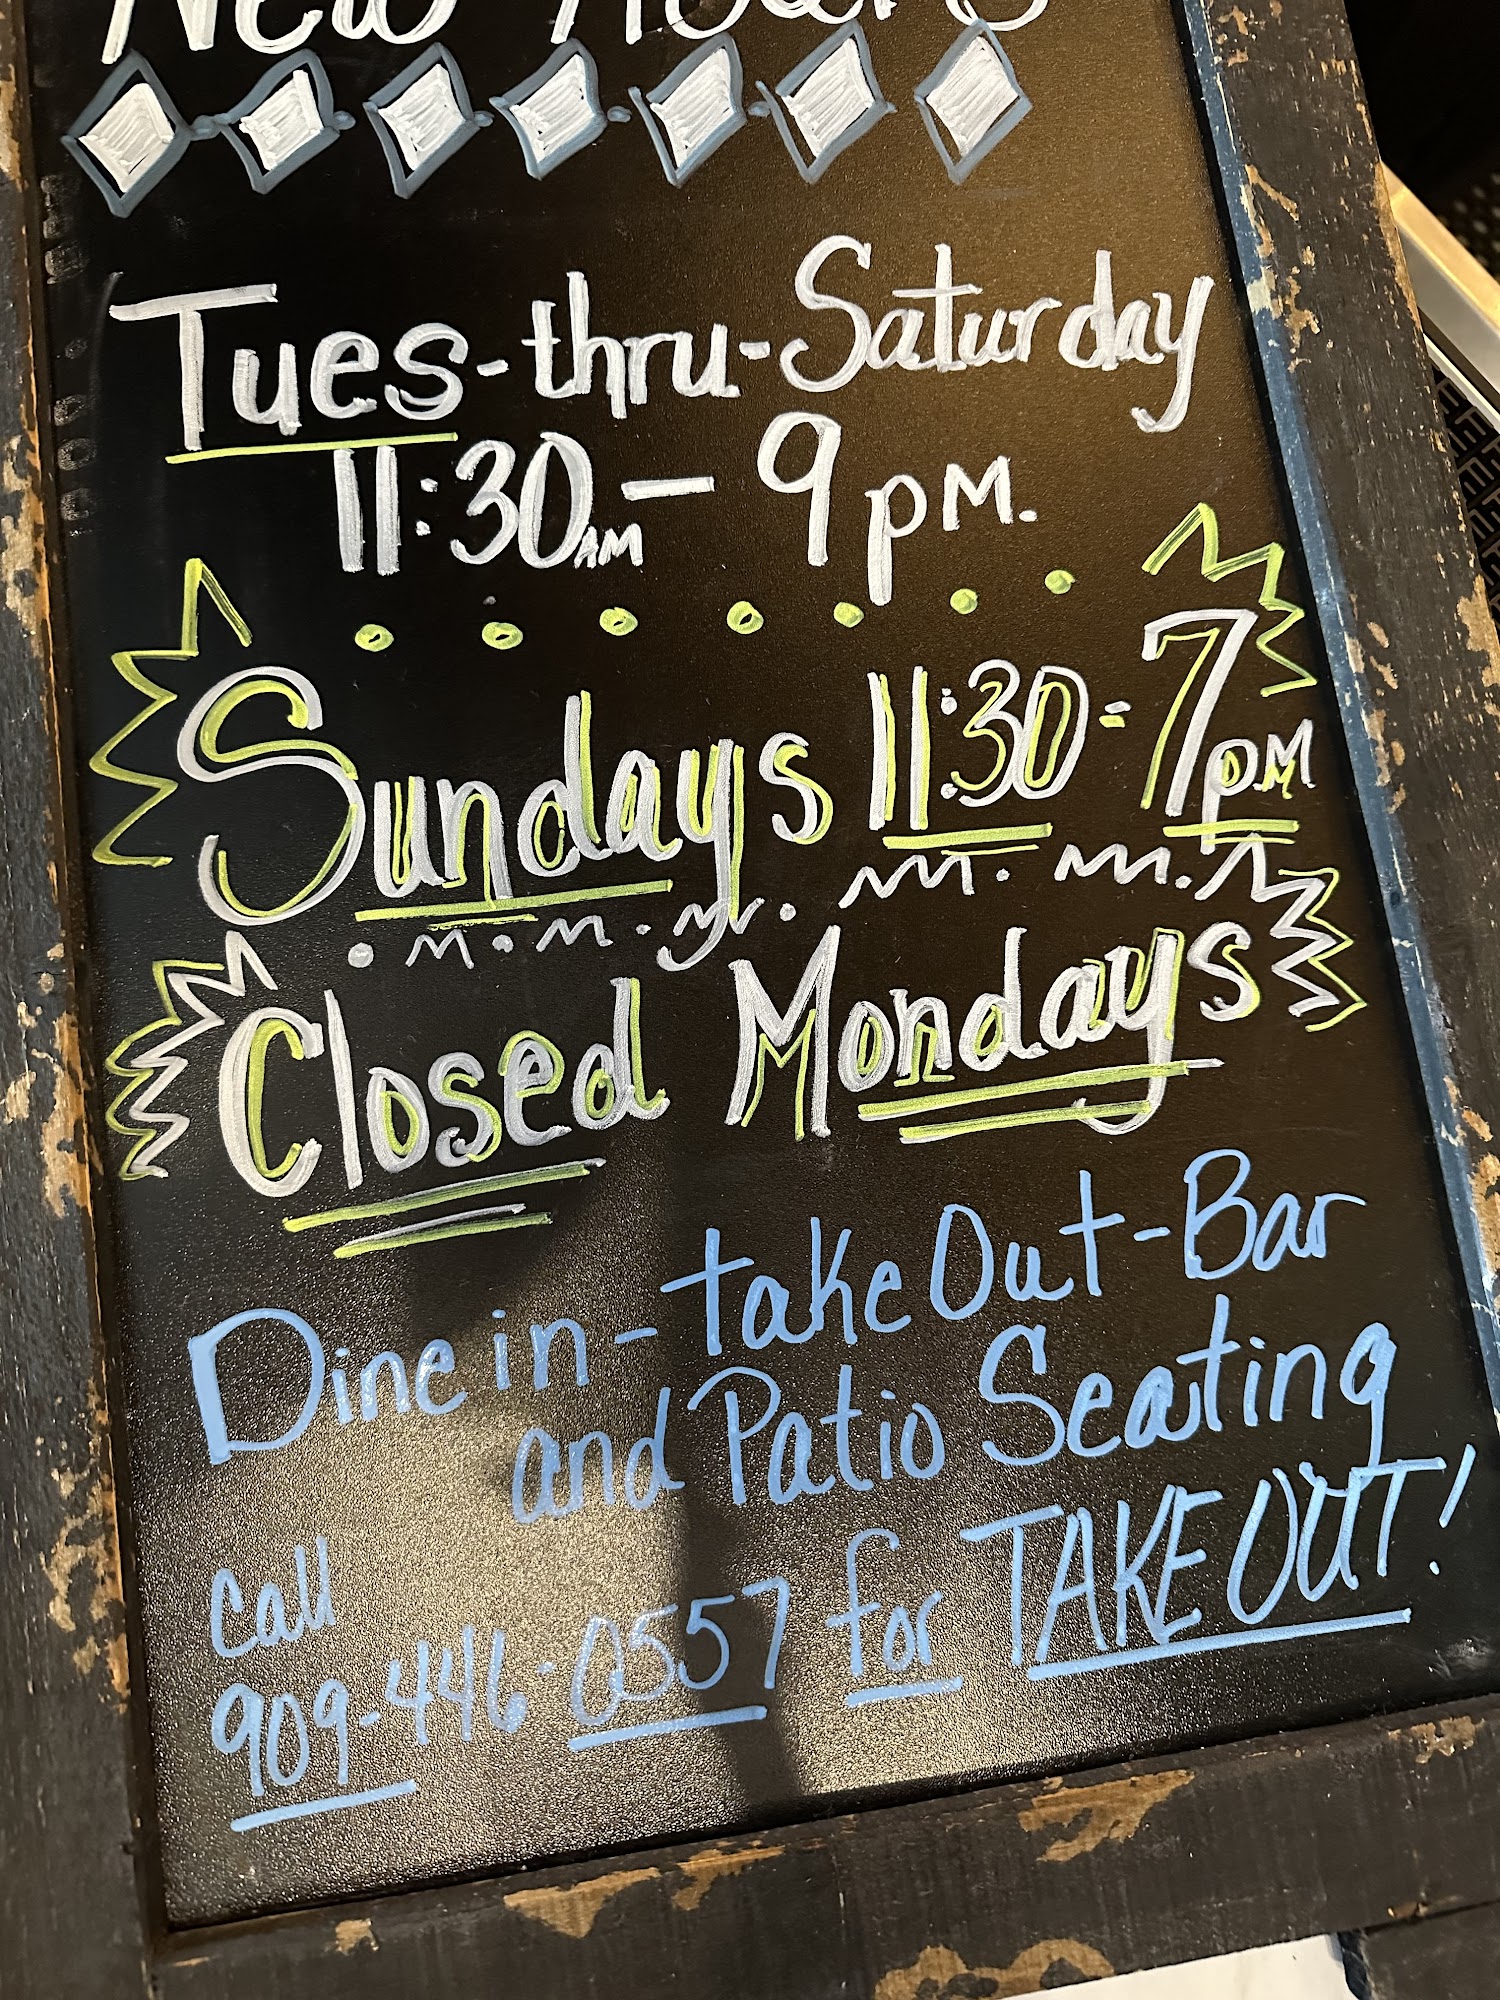 New Hours
Tues-thru-Saturday
11:30AM - 9 PM.
Sundays 11:30-7PM
Closed Mondays
Dine in-take Out-Bar
and Patio Seating
Call
909-446-0557 for TAKE OUT!